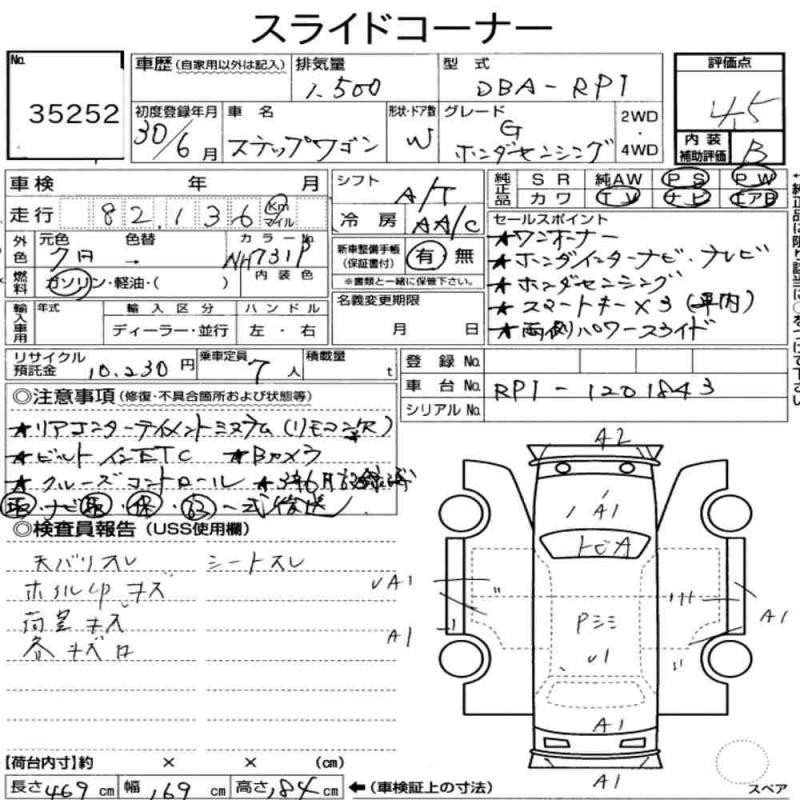 スライドコーナー
No. 35252
車歴 (自家用以外は記入) 排気量 1.500 型式 DBA-RP1
初度登録年月 30/6月 車名 ステップワゴン 形状・ドア数 W グレード G ホンダセンシング 2WD・4WD
評価点 4.5
内装補助評価 B
車検 年 月
走行 82.136 Km マイル
シフト A/T
冷房 AA/C
純正品 SR 純AW PS PW
カワ TV ナビ エアB
外色 元色 クロ → 色替 カラーNo. NH731P
燃料 ガソリン・軽油・( ) 内装色
新車整備手帳(保証書付) 有・無
※書類と一緒に保管下さい。
セールスポイント
★ワンオーナー
★ホンダインターナビ・ナビ
★ホンダセンシング
★スマートキー×3(車内)
★両側パワースライド
輸入車用 年式 輸入区分 ハンドル
ディーラー・並行 左・右
名義変更期限
月 日
リサイクル預託金 10,230円 乗車定員 7人 積載量 t
登録No.
車台No. RP1-1201843
シリアルNo.
◎注意事項 (修復・不具合箇所および状態等)
★リアエンターテイメントシステム(リモコン欠)
★ビルトインETC ★Bカメラ
★クルーズコントロール ★
取・ナビ取・保・記一式後送
◎検査員報告 (USS使用欄)
天バリスレ シートスレ
ホイルCPキズ
荷室キズ
各キズロ
A2
A1
トビA
UA1
A1
A1
Pミミ
U1
A1
A1
スペア
【荷台内寸】約 × × (cm)
長さ 469 cm 幅 169 cm 高さ 184 cm ←(車検証上の寸法)